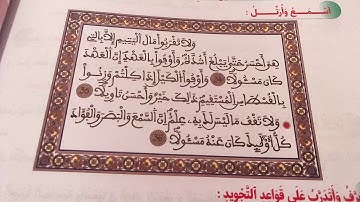 أَسْتَمِعُ وَأُرَتِّلُ :
وَلَا تَقْرَبُواْ مَالَ اَلْيَتِيمِ إِلَّا بِالتِي
هِيَ أَحْسَنُ حَتَّىٰ يَبْلُغَ أَشُدَّهُۥ وَأَوْفُواْ بِالْعَهْدِ إِنَّ اَلْعَهْدَ
كَانَ مَسْـُٔولاً 34 وَأَوْفُواْ اُلْكَيْلَ إِذَا كِلْتُمْ وَزِنُواْ
بِالْقُسْطَاسِ اِلْمُسْتَقِيمِ ذَٰلِكَ خَيْرٌ وَأَحْسَنُ تَأْوِيلاً 35
وَلَا تَقْفُ مَا لَيْسَ لَكَ بِهِۦ عِلْمٌ إِنَّ اَلسَّمْعَ وَالْبَصَرَ وَالْفُؤَادَ
كُلُّ أُوْلَٰٓئِكَ كَانَ عَنْهُ مَسْـُٔولاً 36
وَأَتَدَرَّبُ عَلَى قَوَاعِدِ التَّجْوِيدِ :